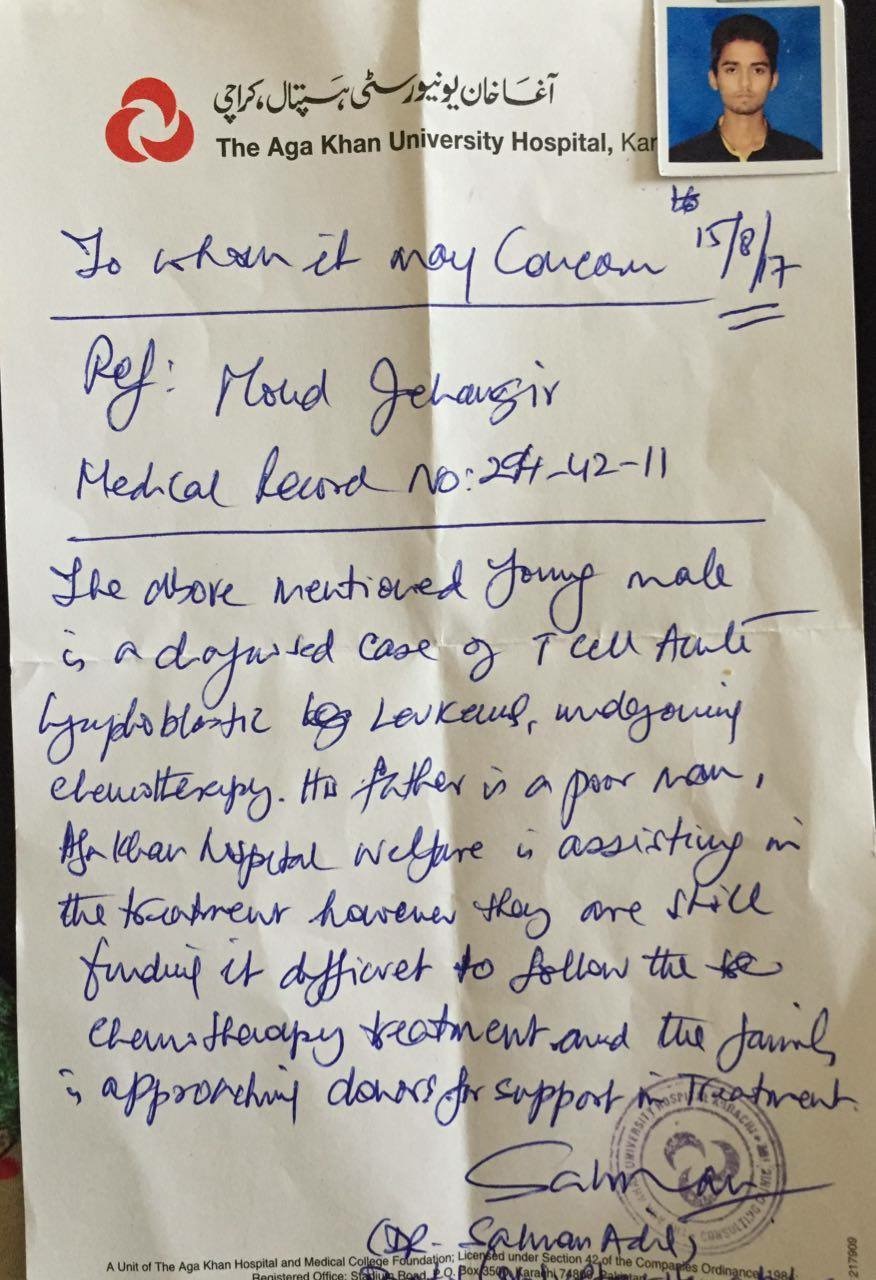 آغا خان یونیورسٹی ہسپتال، کراچی
The Aga Khan University Hospital, Kar
To whom it may Concern 15/8/17
Ref: Mohd Jehangir
Medical Record No: -42-11
The above mentioned young male
is a diagnosed case of T cell Acute
lymphoblastic Leukemia, undergoing
chemotherapy. His father is a poor man,
Aga Khan hospital welfare is assisting in
the treatment however they are still
finding it difficult to follow the
chemotherapy treatment and the family
is approaching donors for support in Treatment.
Salman
(Dr. Salman Adil)
A Unit of The Aga Khan Hospital and Medical College Foundation; Licensed under Section 42 of the Companies Ordinance, 198
Registered Office: Stadium Road, P.O. Box 3500, Karachi 74800, Pakistan
217909